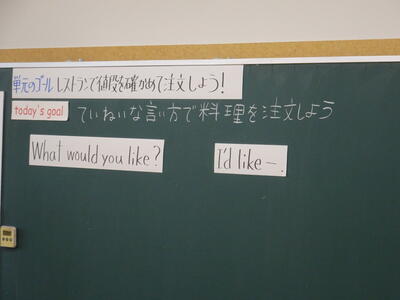 単元のゴール レストランで値段を確かめて注文しよう!
today's goal ていねいな言い方で料理を注文しよう
What would you like? I'd like -.